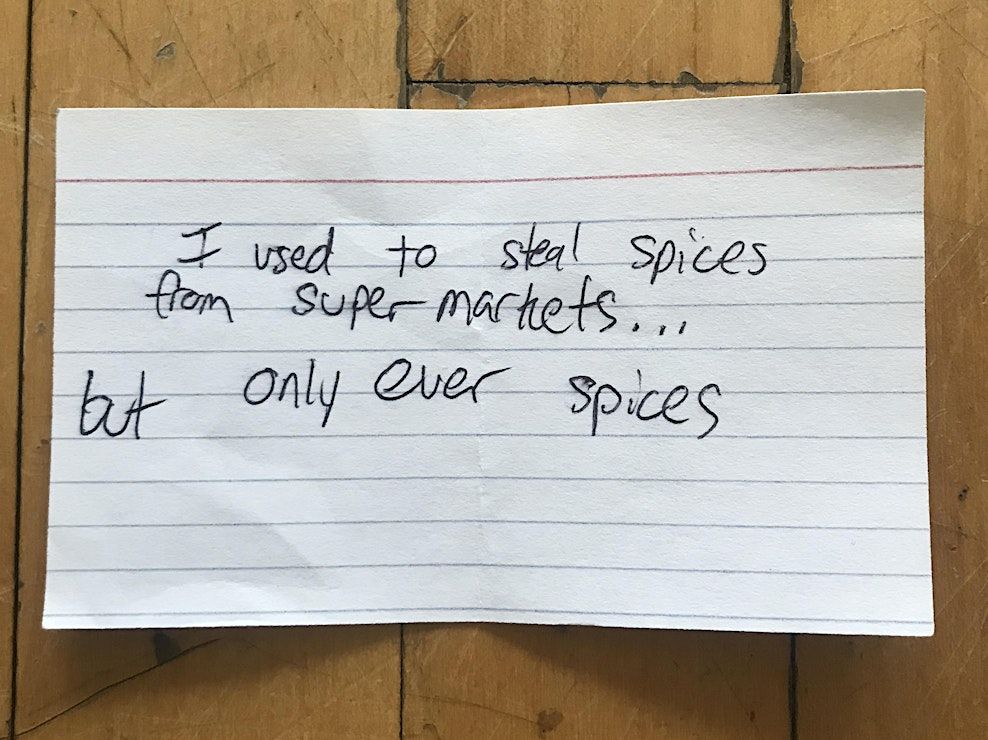 I used to steal spices
from super-markets...
but only ever spices